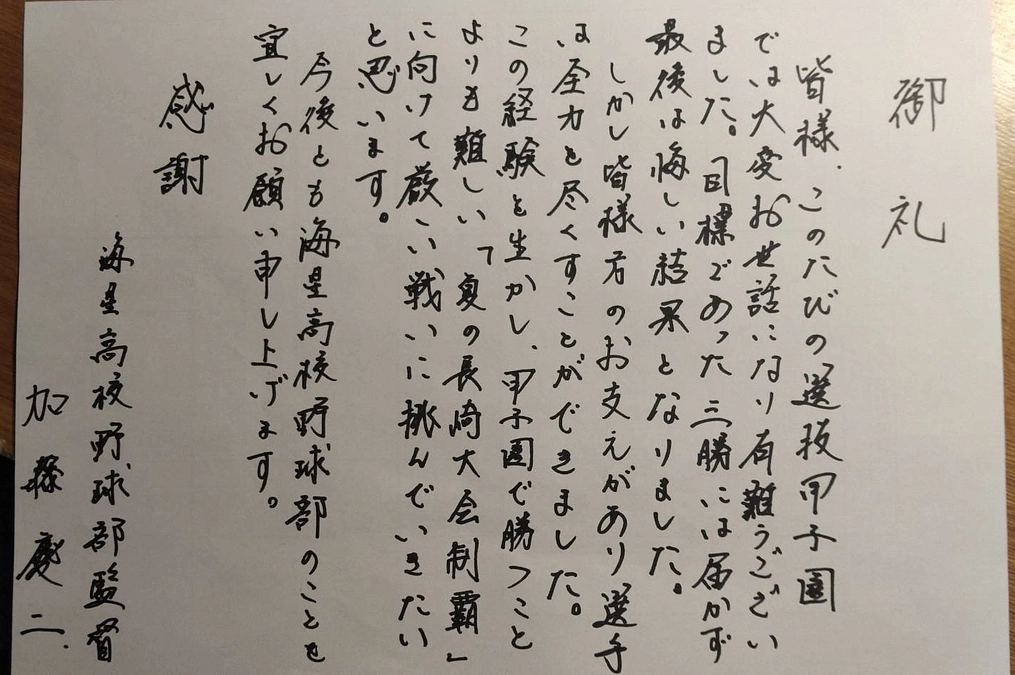 御礼
皆様、このたびの選抜甲子園
では大変お世話になり有難うござい
ました。目標であった三勝には届かず
最後は悔しい結果となりました。
しかし皆様方のお支えがあり選手
は全力を尽くすことができました。
この経験を生かし、甲子園で勝つこと
よりも難しい「夏の長崎大会制覇」
に向けて厳しい戦いに挑んでいきたい
と思います。
今後とも海星高校野球部のことを
宜しくお願い申し上げます。
感謝
海星高校野球部監督
加藤慶二